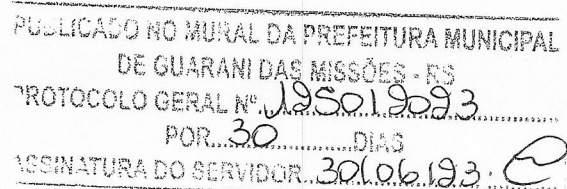 PUBLICADO NO MURAL DA PREFEITURA MUNICIPAL
DE GUARANI DAS MISSÕES - RS
PROTOCOLO GERAL Nº
POR 30 DIAS
ASSINATURA DO SERVIDOR 30/06/23.